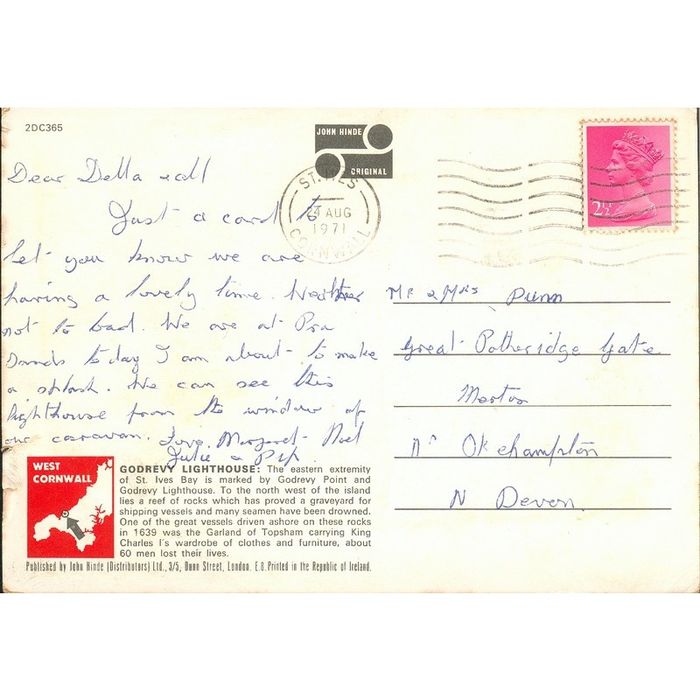 2DC365
JOHN HINDE
ORIGINAL
ST. IVES
24 AUG
1971
CORNWALL
2½
Dear Della & all
Just a card to
let you know we are
having a lovely time. Weather
not to bad. We are at Pra
Sands today I am about to make
a splash. We can see this
lighthouse from the window of
our caravan. Love Margaret Noel
Julie & Pip.
Mr & Mrs Dunn
Great Potheridge Gate
Merton
Nr Okehampton
N Devon.
WEST
CORNWALL
GODREVY LIGHTHOUSE: The eastern extremity
of St. Ives Bay is marked by Godrevy Point and
Godrevy Lighthouse. To the north west of the island
lies a reef of rocks which has proved a graveyard for
shipping vessels and many seamen have been drowned.
One of the great vessels driven ashore on these rocks
in 1639 was the Garland of Topsham carrying King
Charles I's wardrobe of clothes and furniture, about
60 men lost their lives.
Published by John Hinde (Distributors) Ltd., 3/5, Dunn Street, London. E.8. Printed in the Republic of Ireland.